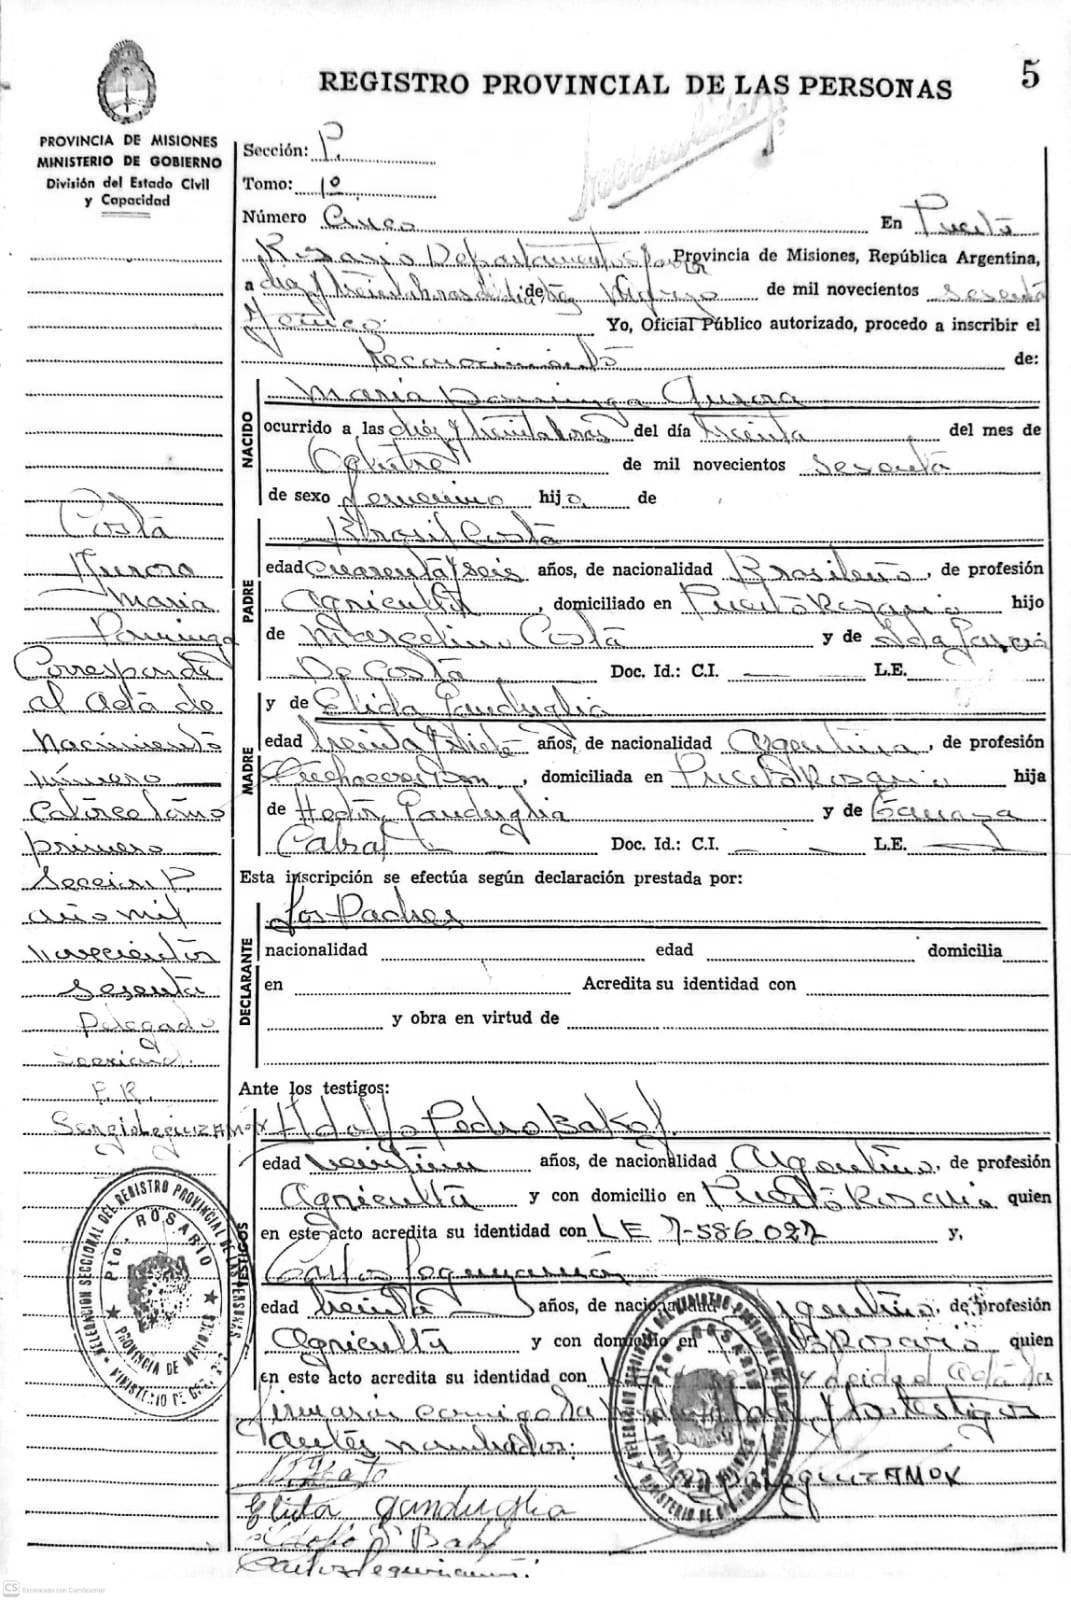 REGISTRO PROVINCIAL DE LAS PERSONAS
5
PROVINCIA DE MISIONES
MINISTERIO DE GOBIERNO
División del Estado Civil
y Capacidad
Costa
Aurora
Maria
Dominga
Corresponde
al acta de
Nacimiento
número
Catorce tomo
primero
Seccion P.
año mil
novecientos
Sesenta
Delegado
Seccional
P. R.
Sergio Leguizamox
Sección: P.
Tomo: 1º
Número Cinco En Puerto
Rosario Departamento Provincia de Misiones, República Argentina,
a diez y treinta horas del dia de Marzo de mil novecientos sesenta
Yo, Oficial Público autorizado, procedo a inscribir el
Reconocimiento de:
NACIDO
Maria Dominga Aurora
ocurrido a las diez y treinta horas del día treinta del mes de
Octubre de mil novecientos sesenta
de sexo femenino hija de
PADRE
Brasil Costa
edad cuarenta y seis años, de nacionalidad Brasileño, de profesión
Agricultor, domiciliado en Puerto Rosario hijo
de Marcelino Costa y de
De Costa Doc. Id.: C.I. L.E.
MADRE
y de Elida Ganduglia
edad treinta y siete años, de nacionalidad Argentina, de profesión
domiciliada en Puerto Rosario hija
de Hector Ganduglia y de
Cabral Doc. Id.: C.I. L.E.
Esta inscripción se efectúa según declaración prestada por:
DECLARANTE
Los Padres
nacionalidad edad domicilia
en Acredita su identidad con
y obra en virtud de
Ante los testigos:
TESTIGOS
Adolfo Pedro Bakof.
edad años, de nacionalidad Argentino, de profesión
Agricultor y con domicilio en Puerto Rosario quien
en este acto acredita su identidad con LE 7-586.027 y,
Carlos Leguizamón
edad treinta años, de nacionalidad Argentino, de profesión
Agricultor y con domicilio en Rosario quien
en este acto acredita su identidad con
firmaran conmigo y los testigos
antes nombrados:
Leguizamox
Elida ganduglia
Adolfo P Bako
Carlos Leguizamon
DELEGACION SECCIONAL DEL REGISTRO PROVINCIAL DE LAS PERSONAS
Pto. ROSARIO
PROVINCIA DE MISIONES
MINISTERIO DE GOB.
CS Escaneado con CamScanner